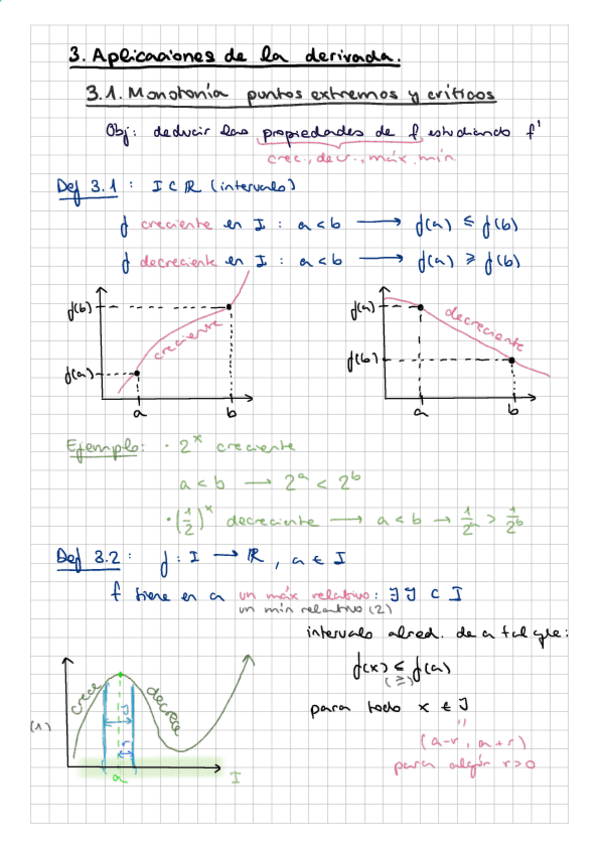 3. Aplicaciones de la derivada.
3.1. Monotonía puntos extremos y críticos
Obj: deducir las propiedades de f estudiando f'
crec., decr., máx, mín
Def 3.1 : I ⊂ ℝ (intervalo)
f creciente en I : a < b ⟶ f(a) ≤ f(b)
f decreciente en I : a < b ⟶ f(a) ≥ f(b)
f(b)
f(a)
creciente
a b
f(a)
f(b)
decreciente
a b
Ejemplo: · 2^x creciente
a < b ⟶ 2^a < 2^b
· (1/2)^x decreciente ⟶ a < b → 1/2^a > 1/2^b
Def 3.2 : f : I ⟶ ℝ , a ∈ I
f tiene en a un máx relativo: ∃ J ⊂ I
un mín relativo (2)
intervalo alred. de a tal que:
f(x) ≤ f(a)
(≥)
para todo x ∈ J
"
(a-r, a+r)
para algún r>0
(1)
crece
decrece
J
r
a
I